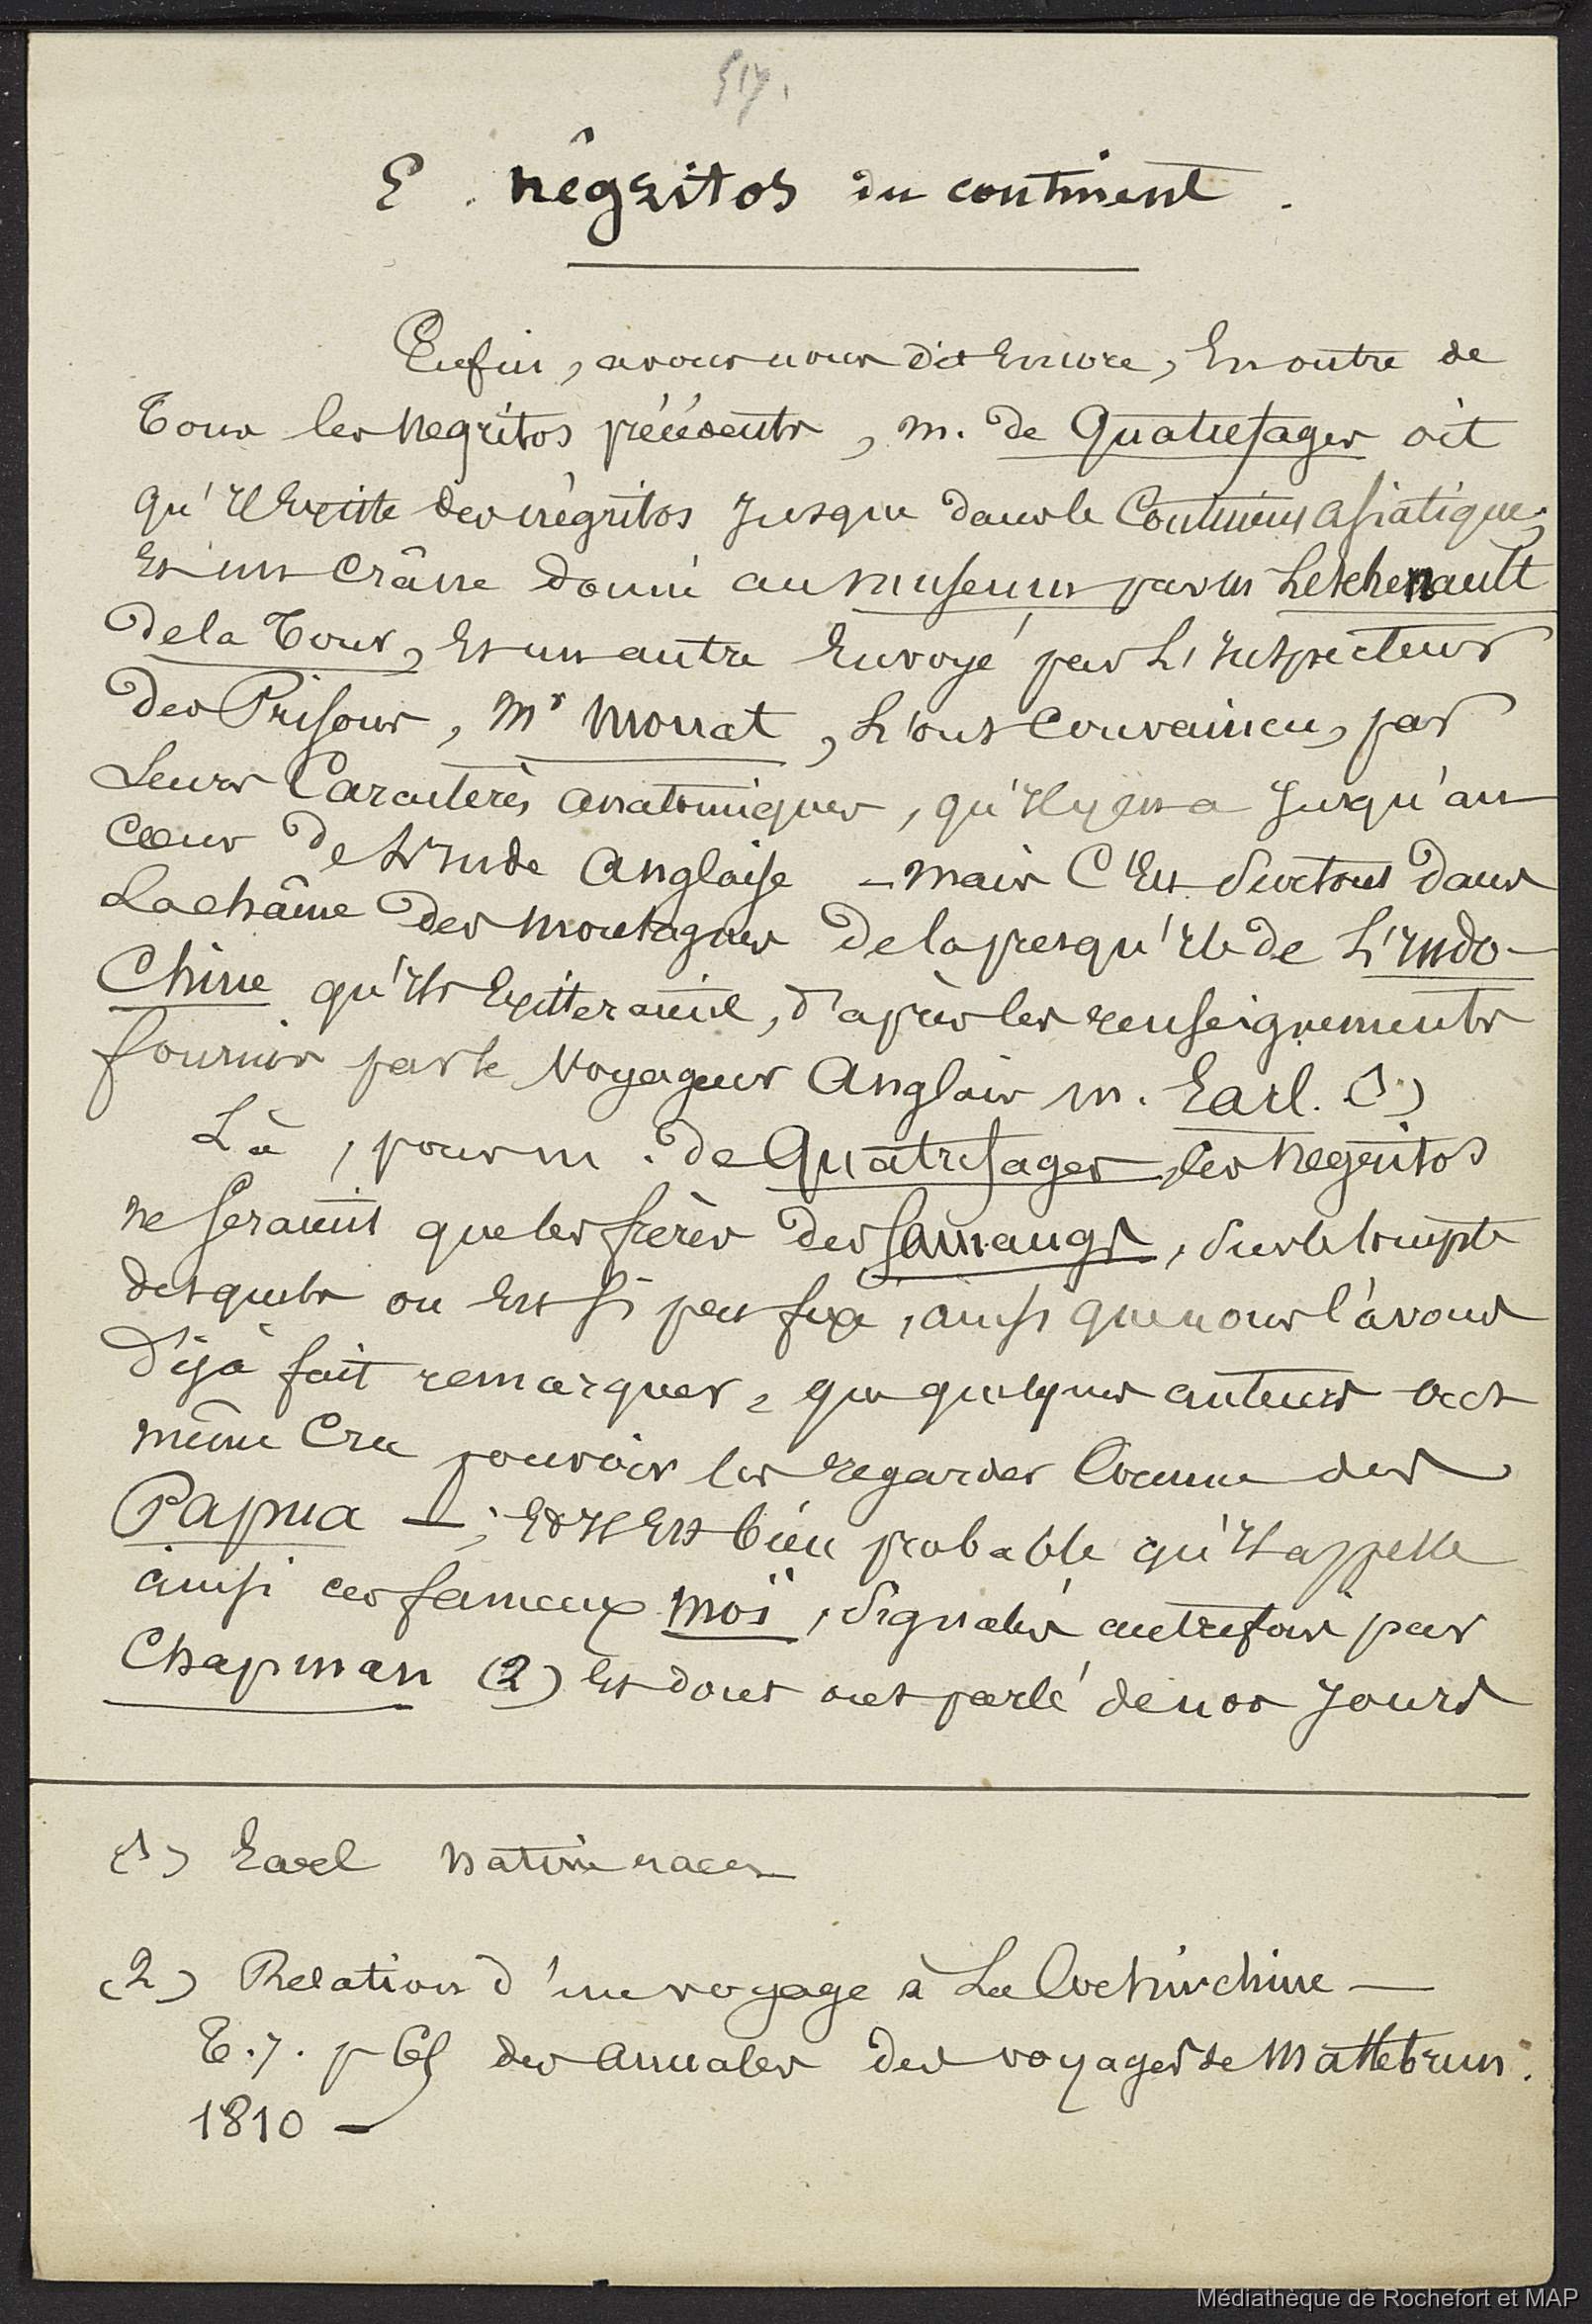 517.
E. Négritos du continent.
Enfin, avons nous dit encore, en outre de
tous les Negritos précédents, M. de Quatrefages dit
qu'il existe des négritos jusque dans le Continent asiatique;
et un crâne donné au museum par M Leschenault
de la Tour, et un autre envoyé par L'inspecteur
des Prisons, Mr Mouat, L'ont convaincu, par
Leurs Caractères anatomiques, qu'il y en a jusqu'au
cœur de L'inde anglaise - mais C'est surtout dans
La chaîne des montagnes de la presqu'ile de L'indo-
Chine qu'ils existeraient, d'après les renseignements
fournis par le voyageur anglais m. Earl. (1)
Là, pour m. de Quatrefages, les Negritos
ne seraient que les frères des Samangs, sur le compte
desquels on est si peu fixé, ainsi que nous l'avons
déjà fait remarquer, que quelques auteurs ont
même cru pouvoir les regarder comme des
Papua -; et il est bien probable qu'il appelle
ainsi ces fameux Moï, signalés autrefois par
Chapman (2) et dont ont parlé de nos jours
(1) Earl Native races
(2) Relation d'un voyage à La Cochinchine -
T. 7. p des annales des voyages de Maltebrun.
1810 -
Médiathèque de Rochefort et MAP